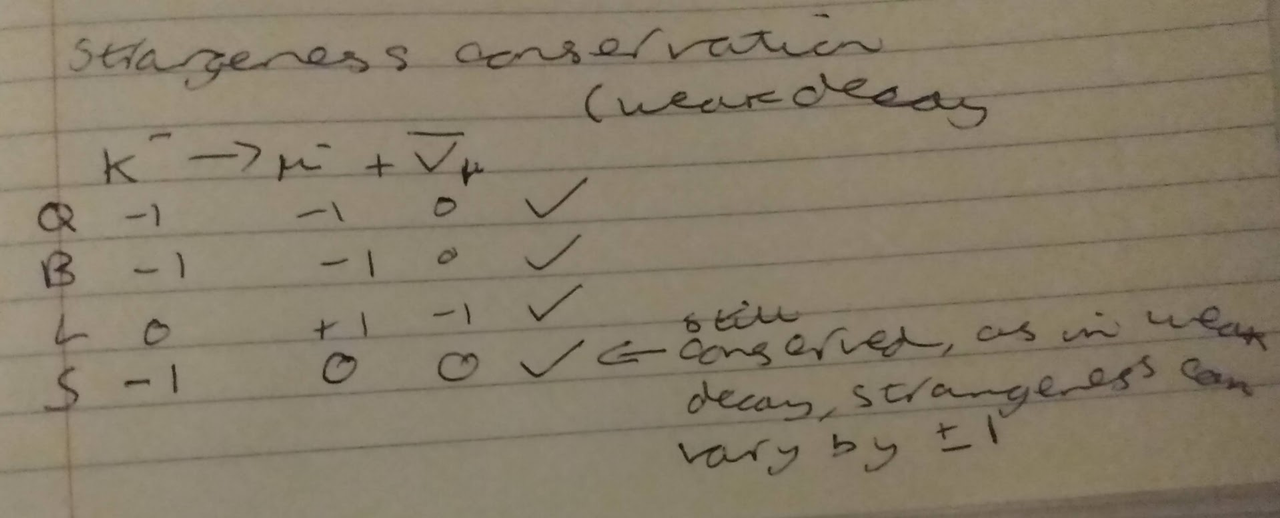 Strangeness conservation
(weak decay
K⁻ → μ⁻ + ν̅μ
Q -1 -1 0 ✓
B -1 -1 0 ✓
L 0 +1 -1 ✓
S -1 0 0 ✓ ← still conserved, as in weak
decay, strangeness can
vary by ±1